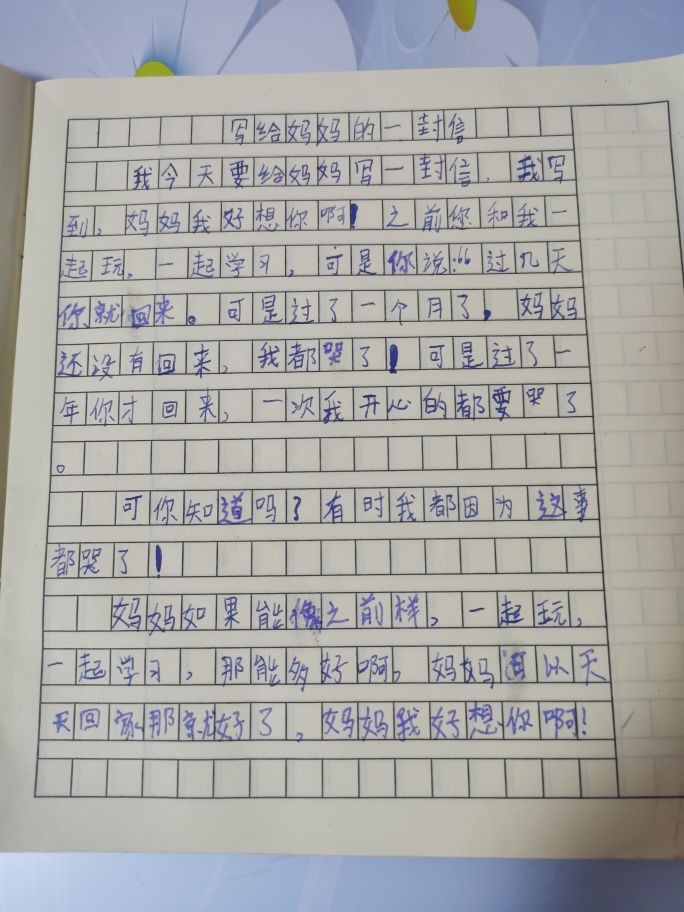 写给妈妈的一封信
我今天要给妈妈写一封信，我写
到，妈妈我好想你啊！之前你和我一
起玩，一起学习，可是你说：“过几天
你就回来。可是过了一个月了，妈妈
还没有回来，我都哭了！可是过了一
年你才回来，一次我开心的都要哭了
。
可你知道吗？有时我都因为这事
都哭了！
妈妈如果能像之前样，一起玩，
一起学习，那能多好啊，妈妈可以天
天回家那就好了，妈妈我好想你啊！